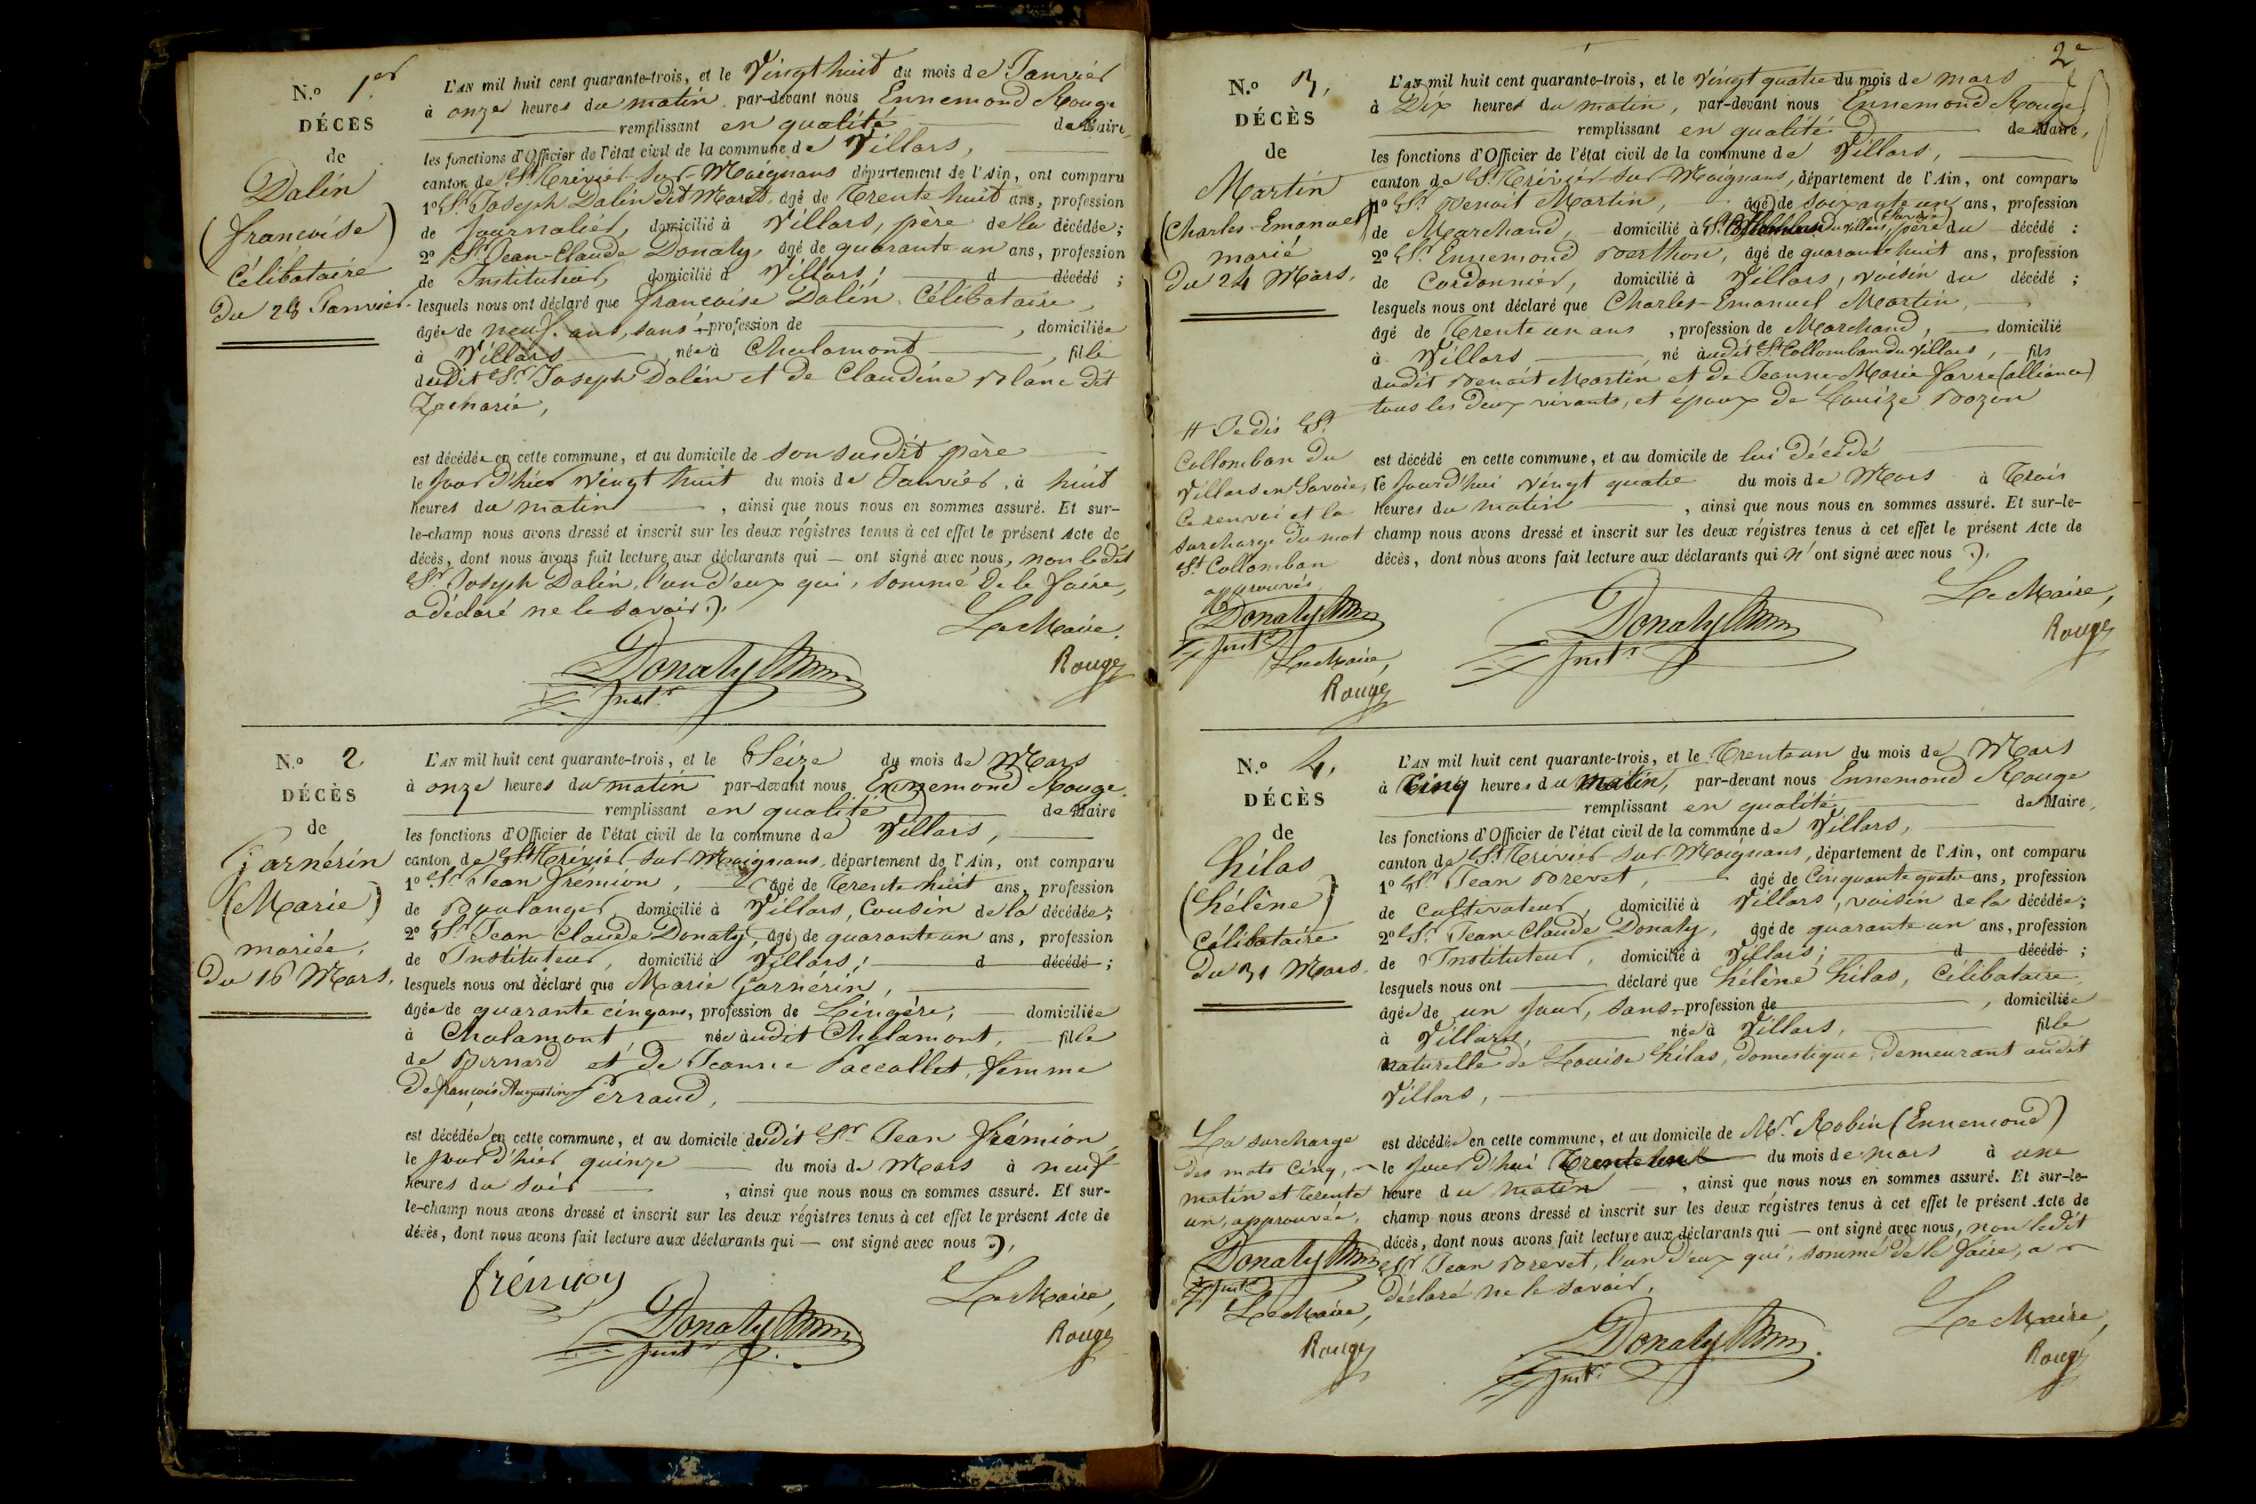 N.º 1er
DÉCÈS
de
Dalin
(francoise)
Célibataire
Du 28 Janvier.
L'AN mil huit cent quarante-trois, et le Vingt huit du mois de Janvier
à onze heures du matin par-devant nous Ennemond Rouge
remplissant en qualité de Maire,
les fonctions d'Officier de l'état civil de la commune de Villars,
canton de St Trivier-sur-Moignans département de l'Ain, ont comparu
1º Sr Joseph Dalin dit Morel, âgé de Trente huit ans, profession
de Journalier, domicilié à Villars, père de la décédée;
2º Sr Jean-Claude Donaty, âgé de quarante un ans, profession
de Instituteur, domicilié à Villars; d décédé;
lesquels nous ont déclaré que francoise Dalin, Célibataire,
âgée de neuf ans, sans profession de , domiciliée
à Villars , née à Chalamont , fille
dudit Sr Joseph Dalin et de Claudine Blanc dit
Zacharie,
est décédée en cette commune, et au domicile de son susdit père
le Jour d'hier Vingt huit du mois de Janvier, à huit
heures du matin , ainsi que nous nous en sommes assuré. Et sur-
le-champ nous avons dressé et inscrit sur les deux régistres tenus à cet effet le présent Acte de
décès, dont nous avons fait lecture aux déclarants qui — ont signé avec nous, non ledit
Sr Joseph Dalin, l'un d'eux qui, sommé de le faire,
a déclaré ne le savoir.
Le Maire.
Donaty
Instr
Rouge
N.º 2
DÉCÈS
de
Garnérin
(Marie)
mariée,
Du 16 Mars.
L'AN mil huit cent quarante-trois, et le Seize du mois de Mars
à onze heures du matin par-devant nous Ennemond Rouge.
remplissant en qualité de Maire
les fonctions d'Officier de l'état civil de la commune de Villars,
canton de St Trivier-sur-Moignans, département de l'Ain, ont comparu
1º Sr Jean frémion, âgé de Trente huit ans, profession
de Boulanger, domicilié à Villars, Cousin de la décédée;
2º Sr Jean-Claude Donaty, âgé de quarante un ans, profession
de Instituteur, domicilié à Villars; d décédé;
lesquels nous ont déclaré que Marie Garnérin,
âgée de quarante cinq ans, profession de Lingère, domiciliée
à Chalamont, née audit Chalamont, fille
de Bernard et de Jeanne Paccallet, femme
De françois Augustin Perraud,
est décédée en cette commune, et au domicile dudit Sr Jean frémion
le Jour d'hier quinze du mois de Mars à neuf
heures du soir , ainsi que nous nous en sommes assuré. Et sur-
le-champ nous avons dressé et inscrit sur les deux régistres tenus à cet effet le présent Acte de
décès, dont nous avons fait lecture aux déclarants qui — ont signé avec nous.
frémion
Le Maire,
Donaty
Instr
Rouge
2e
N.º 3,
DÉCÈS
de
Martin
(Charles-Emanuel)
marié
Du 24 Mars.
L'AN mil huit cent quarante-trois, et le Vingt quatre du mois de mars
à Dix heures du matin, par-devant nous Ennemond Rouge
remplissant en qualité de Maire,
les fonctions d'Officier de l'état civil de la commune de Villars,
canton de St Trivier-sur-Moignans, département de l'Ain, ont comparu
1º Sr Benoit Martin, âgé de soixante un ans, profession
de Marchand, domicilié à St Collomban du Villars (Savoie), père du décédé :
2º Sr Ennemond Berthon, âgé de quarante huit ans, profession
de Cordonnier, domicilié à Villars, voisin du décédé ;
lesquels nous ont déclaré que Charles-Emanuel Martin,
âgé de Trente un ans , profession de Marchand, domicilié
à Villars , né audit St Collomban du Villars, fils
dudit Benoit Martin et de Jeanne-Marie favre (alliance)
tous les deux vivants, et époux de Louize Bozon
est décédé en cette commune, et au domicile de lui Décédé
le Jourd'hui Vingt quatre du mois de Mars à Trois
heures du matin , ainsi que nous nous en sommes assuré. Et sur-le-
champ nous avons dressé et inscrit sur les deux régistres tenus à cet effet le présent Acte de
décès, dont nous avons fait lecture aux déclarants qui n'ont signé avec nous.
# Je dis St
Collomban du
Villars en Savoie,
le renvoi et la
surcharge du mot
St Collomban
approuvés
Donaty
Instr
Le Maire,
Rouge
Le Maire,
Donaty
Instr
Rouge
N.º 4,
DÉCÈS
de
hilas
(hélène)
Célibataire
Du 31 Mars.
L'AN mil huit cent quarante-trois, et le Trente un du mois de Mars
à Cinq heures du matin, par-devant nous Ennemond Rouge
remplissant en qualité de Maire,
les fonctions d'Officier de l'état civil de la commune de Villars,
canton de St Trivier-sur-Moignans, département de l'Ain, ont comparu
1º Sr Jean Brevet, âgé de Cinquante quatre ans, profession
de Cultivateur, domicilié à Villars, voisin de la décédée;
2º Sr Jean-Claude Donaty, âgé de quarante un ans, profession
de Instituteur, domicilié à Villars; d décédé ;
lesquels nous ont déclaré que hélène hilas, Célibataire
âgée de un Jour, sans profession de , domiciliée
à Villars, née à Villars, fille
naturelle de Louise hilas, domestique, demeurant audit
Villars,
est décédée en cette commune, et au domicile de Mr Robin (Ennemond)
le Jour d'hui Trente un du mois de mars à une
heure du matin , ainsi que nous nous en sommes assuré. Et sur-le-
champ nous avons dressé et inscrit sur les deux régistres tenus à cet effet le présent Acte de
décès, dont nous avons fait lecture aux déclarants qui — ont signé avec nous, non ledit
Sr Jean Brevet, l'un d'eux qui, sommé de le faire, a
déclaré ne le savoir.
La surcharge
des mots Cinq,
matin et Trente
un, approuvée.
Donaty
Instr
Le Maire,
Rouge
Le Maire,
Donaty
Instr
Rouge